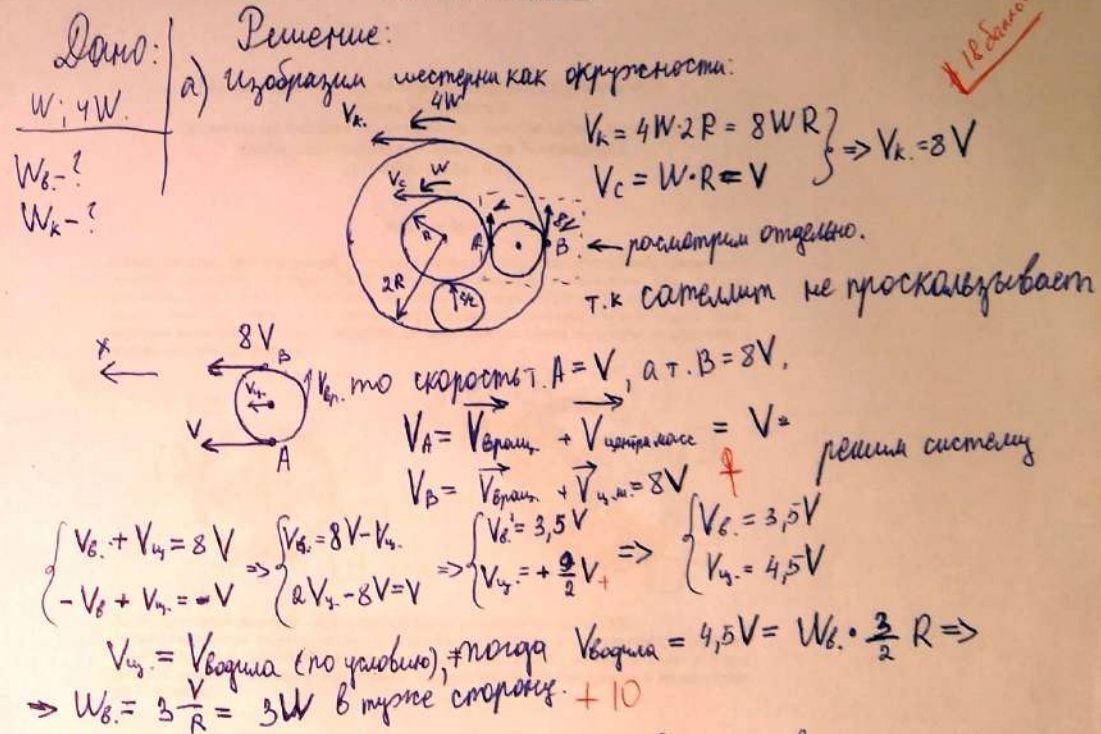 Дано:
W; 4W.
Wв.-?
Wк-?
Решение:
а) Изобразим шестерни как окружности:
18 балло
Vк.
4W
Vc
W
R
2R
A
8V
B
R/2
Vк = 4W·2R = 8WR
Vc = W·R = V
} => Vк. = 8V
← посмотрим отдельно.
т.к сателлит не проскальзывает
x
8V
B
Vц.
Vвр.
V
A
то скорость т. A = V, а т. B = 8V.
VA = Vвращ. + Vцентра масс = V
VB = Vвращ. + Vц.м. = 8V
решим систему
{ Vв. + Vц = 8V => { Vв. = 8V - Vц. => { Vв. = 3,5V => { Vв. = 3,5V
{ -Vв + Vц. = V { 2Vц. - 8V = V { Vц. = + 9/2 V + { Vц. = 4,5V
Vц. = Vводила (по условию), тогда Vводила = 4,5V = Wв. · 3/2 R =>
=> Wв. = 3 V/R = 3W в туже сторону. + 10